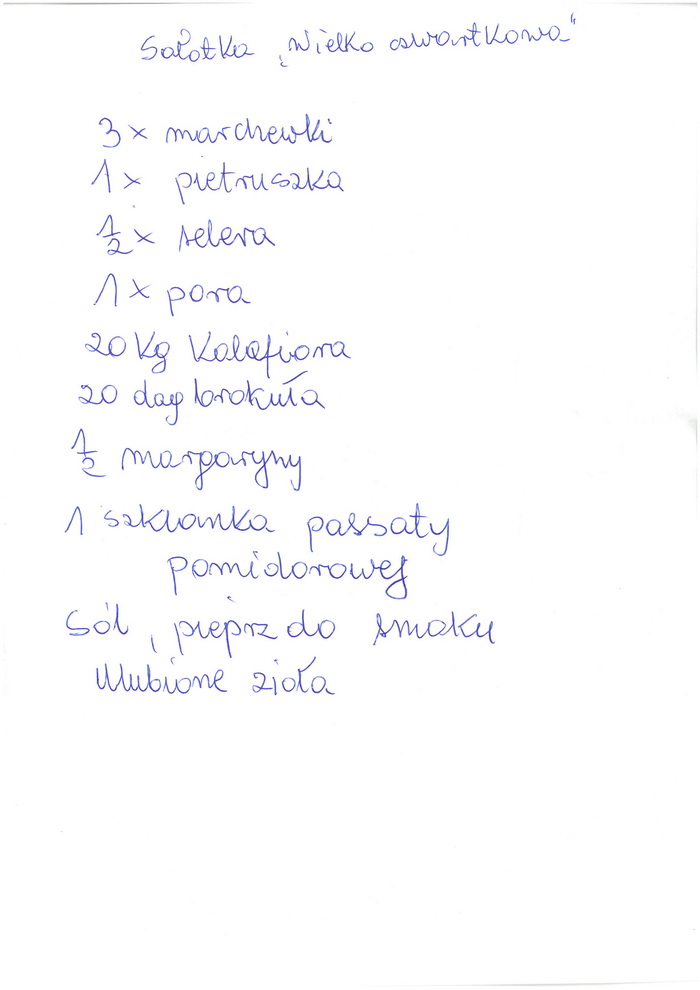 Sałatka „Wielko czwartkowa"
3 x marchewki
1 x pietruszka
1/2 x selera
1 x pora
20 kg kalafiora
20 dag brokuła
1/2 margaryny
1 szklanka passaty
pomidorowej
Sól, pieprz do smaku
Ulubione zioła